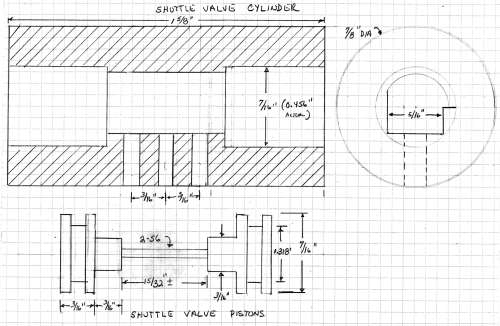 SHUTTLE VALVE CYLINDER
1 5/8"
7/8" DIA
7/16" (0.456"
5/16"
3/16"
3/16"
2-56
.318"
7/16"
15/32" ±
3/16"
3/16"
3/16"
SHUTTLE VALVE PISTONS